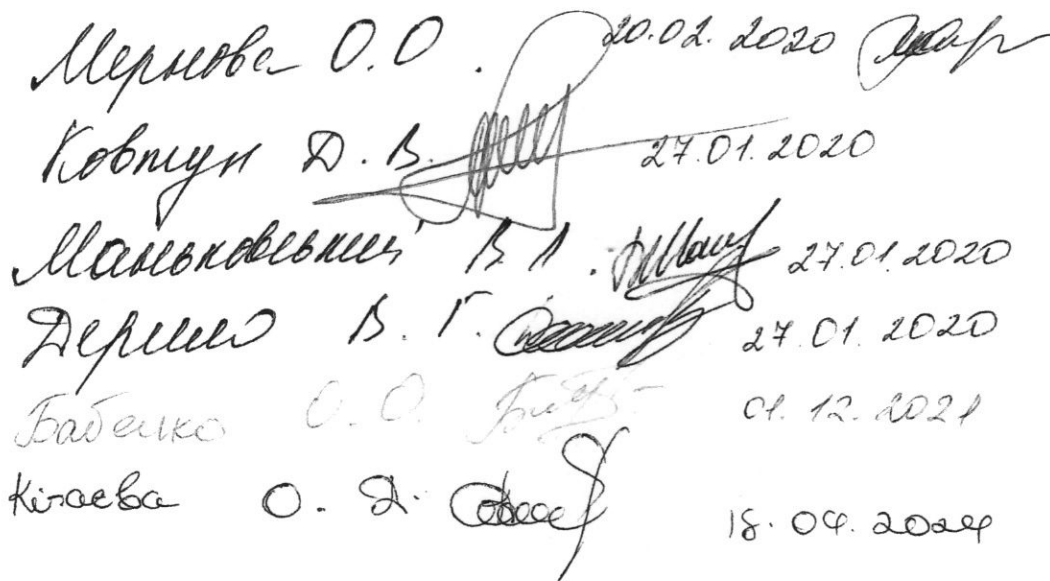 Мернова О.О. 20.02.2020
Ковтун Д.В. 27.01.2020
Маньковський В.Л. 27.01.2020
В.Г. 27.01.2020
Бабенко О.О. 01.12.2021
О.Д. 18.04.2024